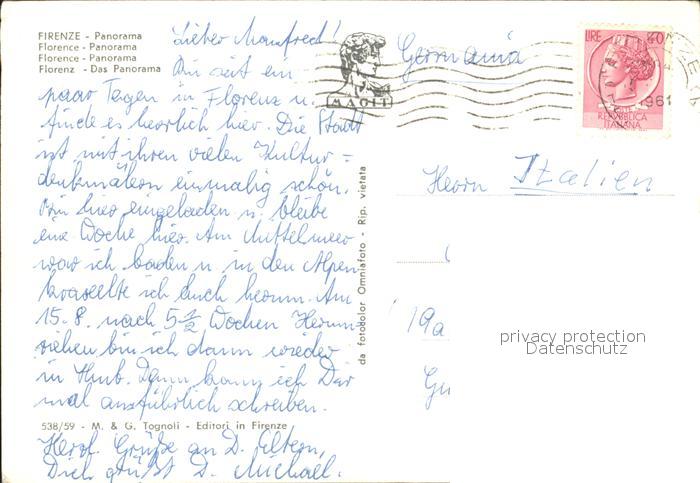 FIRENZE - Panorama
Florence - Panorama
Florence - Panorama
Florenz - Das Panorama
Lieber Manfred!
Bin seit ein
paar Tagen in Florenz u.
finde es herrlich hier. Die Stadt
ist mit ihren vielen Kultur-
denkmälern einmalig schön.
Bin hier eingeladen u. bleibe
eine Woche hier. Am Mittelmeer
war ich baden u in den Alpen
kraxelte ich auch herum. Am
15.8. nach 5 1/2 Wochen Herum
ziehen bin ich dann wieder
in Hmb. Dann kann ich Dir
mal ausführlich schreiben.
538/59 - M. & G. Tognoli - Editori in Firenze
Herzl. Grüße an D. Eltern,
Dich grüßt D. Michael.
da fotodolor Omniafoto - Rip. vietata
MAGIT
Germania
LIRE 40
1961
REPVBBLICA
ITALIANA
Herrn Italien
19a
privacy protection
Datenschutz